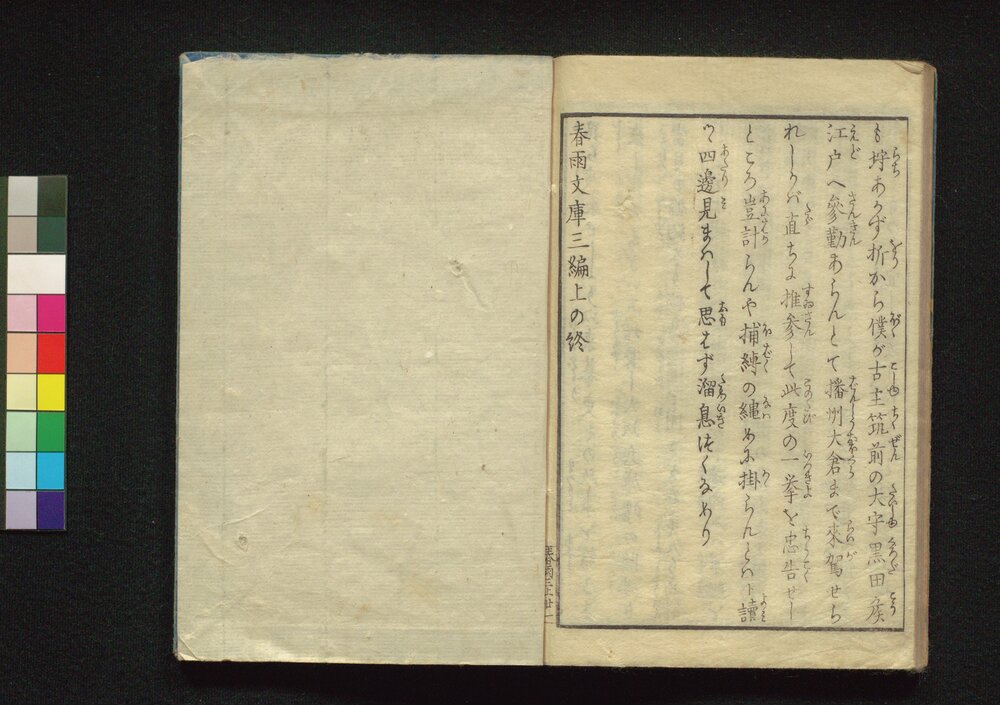 も埒あかず折から僕が古主筑前の大守黒田侯
江戸へ參勤あらんとて播州大倉まで來駕せら
れしかバ直ちに推参して此度の一挙を忠告せし
ところ豈計らんや捕縛の縄めに掛らんとハト讀
ツヽ四邊見まハして思はず溜息つくなり
春雨文庫三編上の終